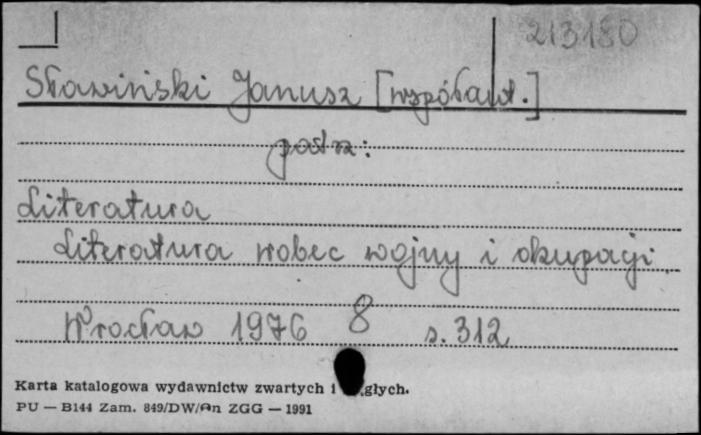 213180
Sławiński Janusz [współaut.]
patrz:
Literatura
Literatura wobec wojny i okupacji.
Wrocław 1976 8 s. 312
Karta katalogowa wydawnictw zwartych i głych.
PU — B144 Zam. 849/DW/An ZGG — 1991